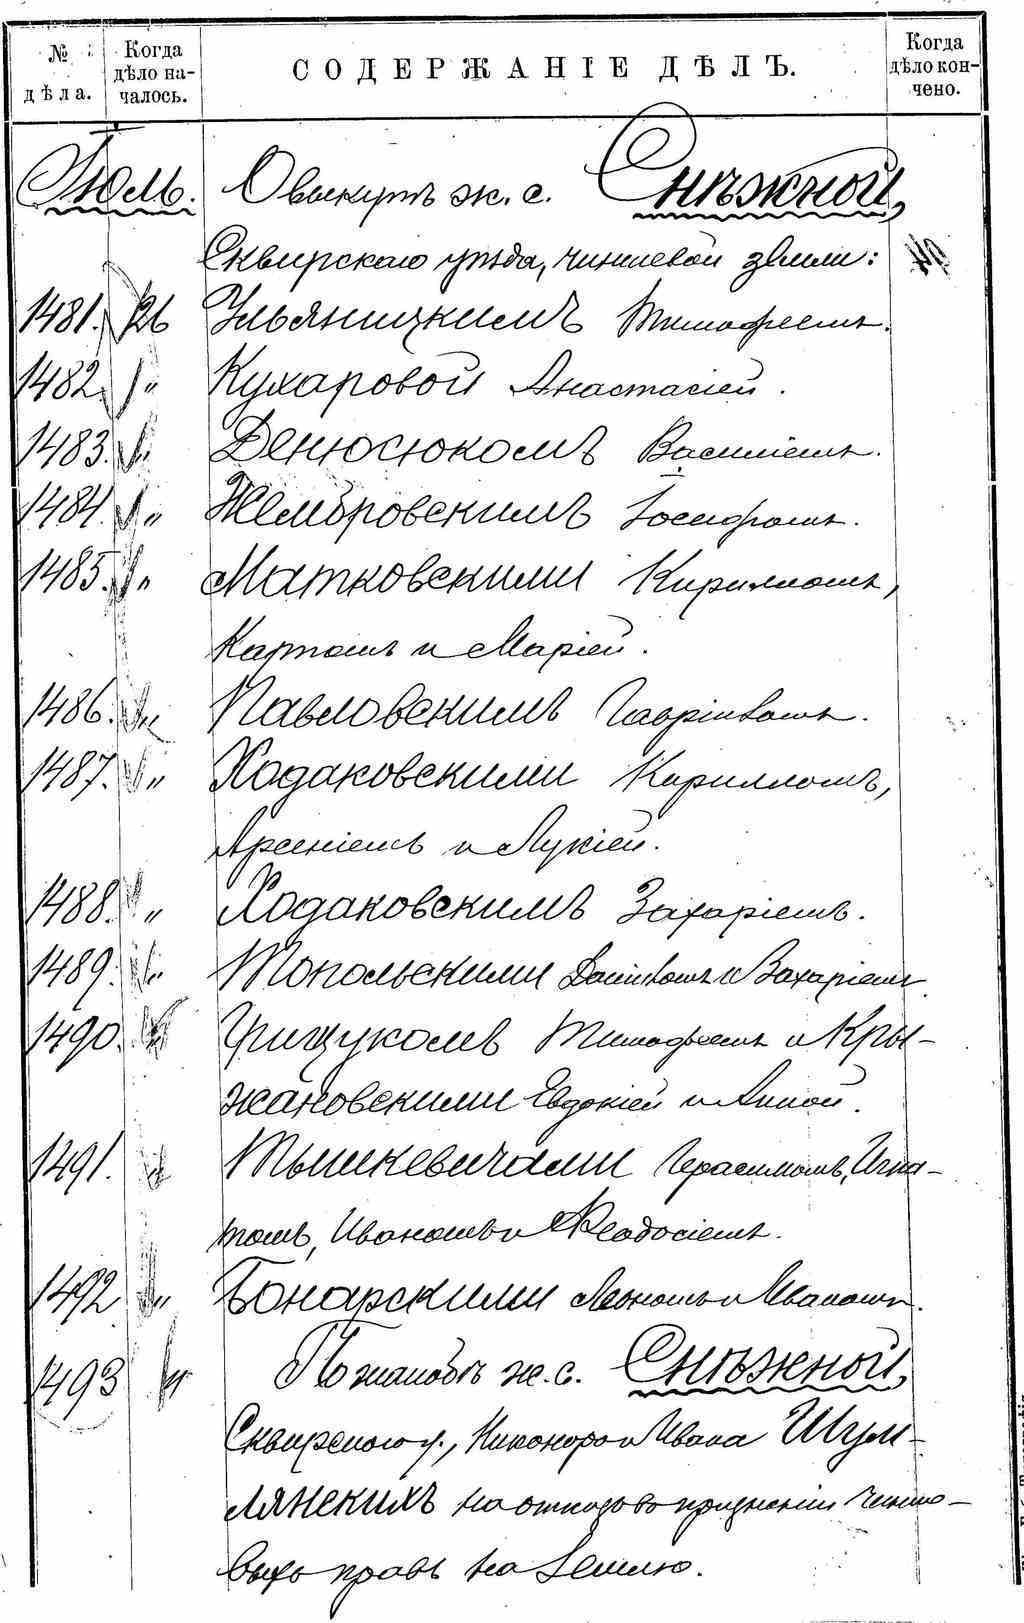 № дѣла.
Когда дѣло началось.
СОДЕРЖАНІЕ ДѢЛЪ.
Когда дѣло кончено.
Іюль. О выкупѣ ж. с. Снѣжной,
Сквирскаго уѣзда, чиншевой земли:
1481. 26 Ульяницкимъ Тимофеемъ.
1482. " Кухаровой Анастасіей.
1483. " Денюсюкомъ Василіемъ.
1484. " Жембровскимъ Іосифомъ.
1485. " Матковскими Кирилломъ,
Карпомъ и Маріей.
1486. " Павловскимъ Гавріиломъ.
1487. " Ходаковскими Кирилломъ,
Арсеніемъ и Лукіей.
1488. " Ходаковскимъ Захаріемъ.
1489. " Топольскими Даніиломъ и Захаріемъ
1490. " Грищукомъ Тимофеемъ и Кры-
жановскими Евдокіей и Анной.
1491. " Тышкевичами Герасимомъ, Игна-
томъ, Иваномъ и Феодосіемъ.
1492 " Бонарскими Леономъ и Иваномъ.
1493 " По жалобѣ ж. с. Снѣжной,
Сквирскаго у., Никонора и Ивана Шум-
лянскихъ на отказъ въ признаніи чинше-
выхъ правъ на землю.